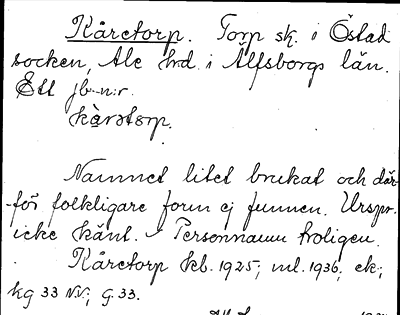 Kåretorp. Torp sk. i Östad
socken, Ale hrd. i Älfsborgs län.
Ett jb-n:r.
kàrətɔrp.
Namnet litet brukat och där-
för folkligare form ej funnen. Urspr.
icke känt. Personnamn troligen.
Kåretorp kb. 1925; ml. 1936; ek;
kg 33 NV; G. 33.